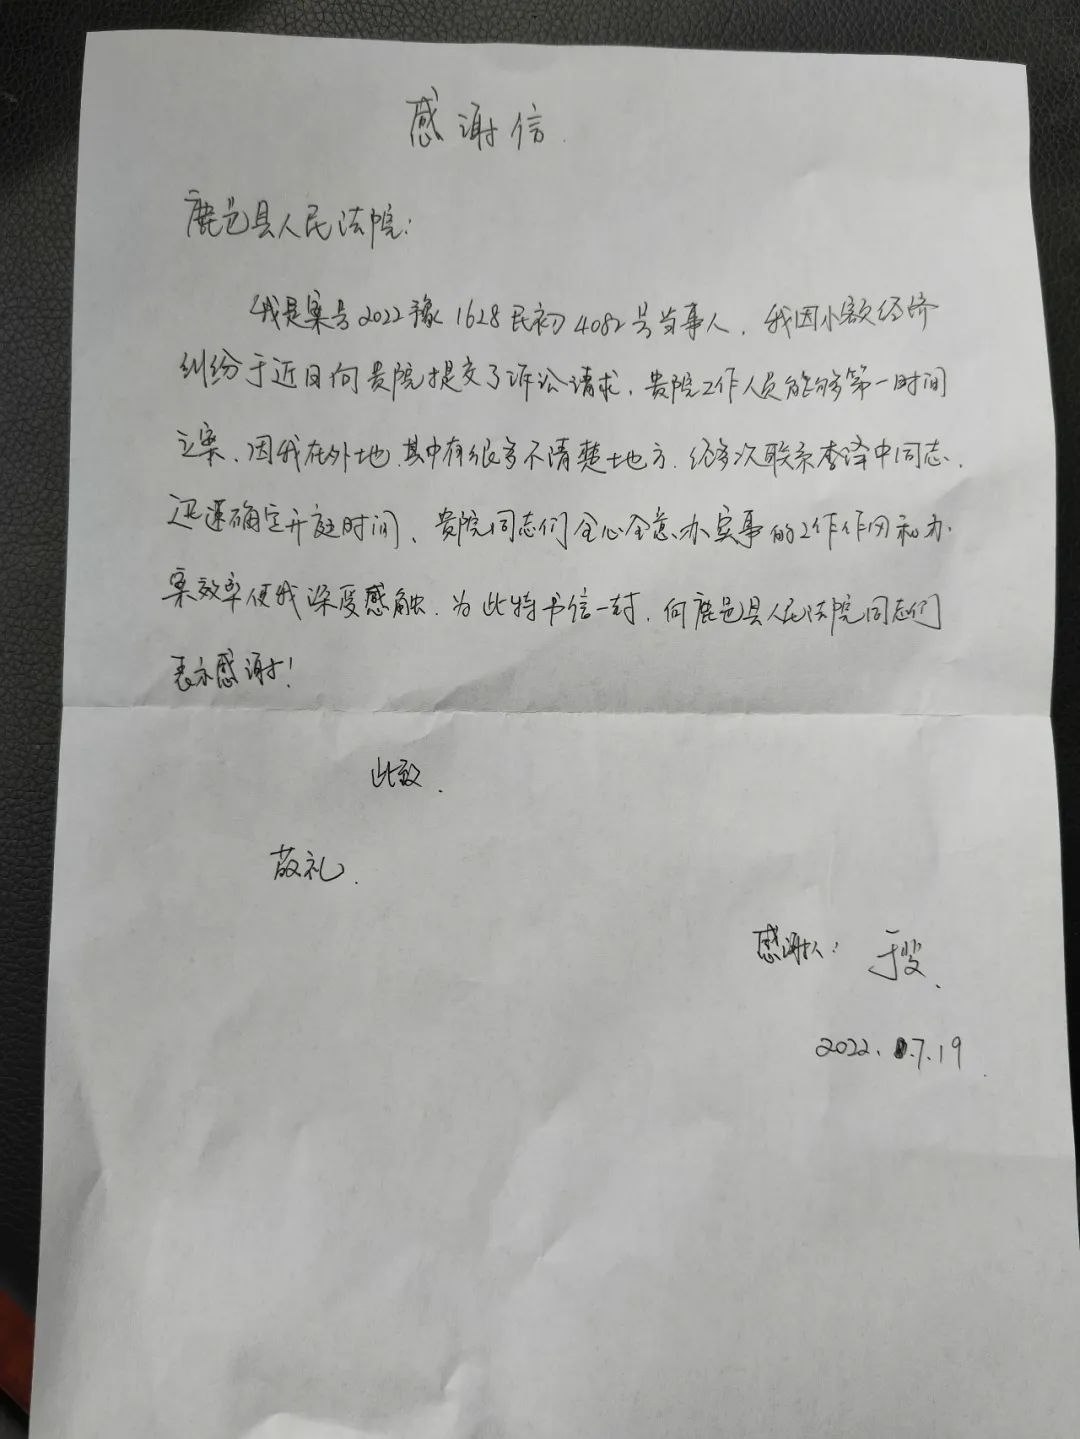 感谢信.
鹿邑县人民法院:
我是案号2022豫1628民初4082号当事人. 我因小额经济
纠纷于近日向贵院提交了诉讼请求, 贵院工作人员能够第一时间
立案、因我在外地.其中有很多不清楚地方.经多次联系李泽中同志.
迅速确定开庭时间、贵院同志们全心全意办实事的工作作风和办
案效率使我深受感触.为此特书信一封.向鹿邑县人民法院同志们
表示感谢!
此致.
敬礼.
感谢人: 于
2022.07.19